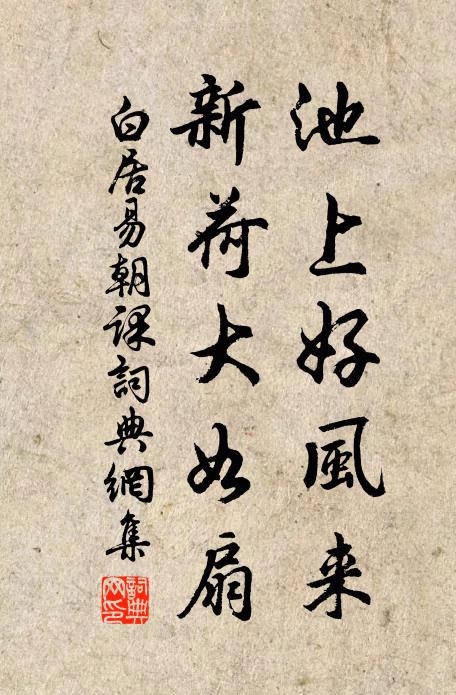 池上好風来
新荷大如扇
白居易朝课詞典網集
詞典网印